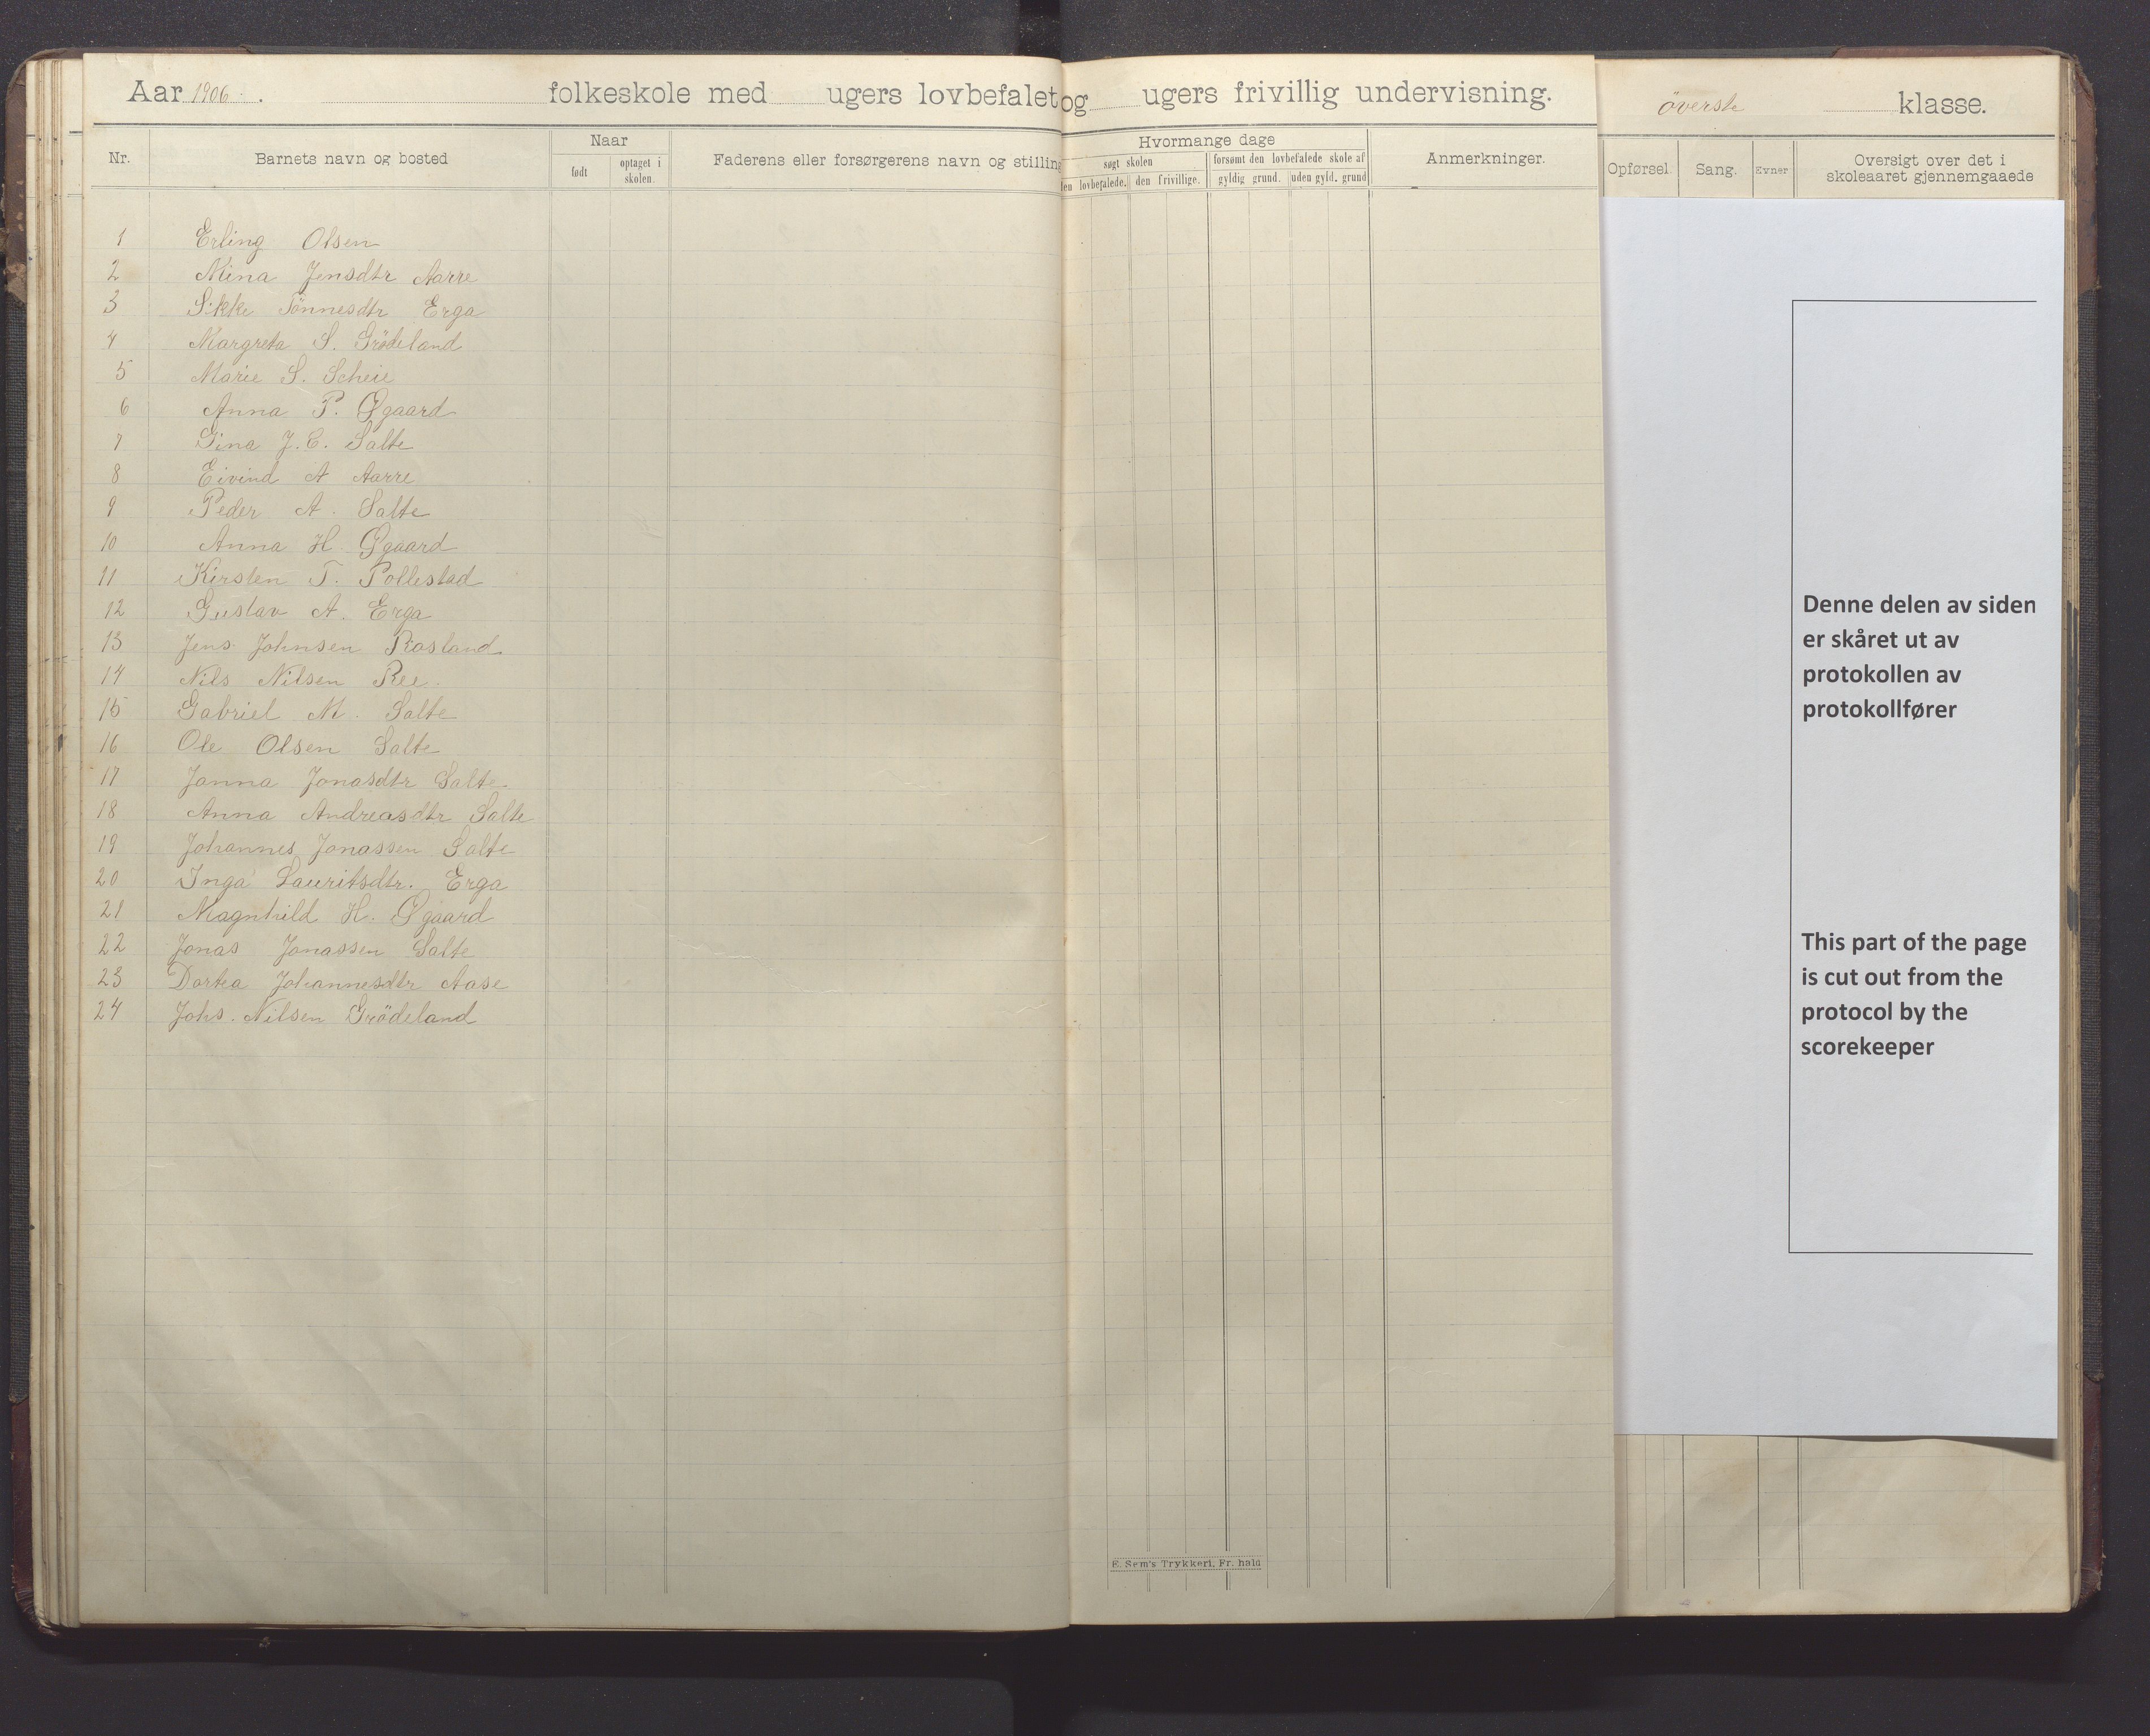 Aar 1906. folkeskole med ugers lovbefalet og ugers frivillig undervisning.
överste klasse.
Nr.
Barnets navn og bosted
Naar
født
optaget i skolen.
Faderens eller forsørgerens navn og stilling
Hvormange dage
søgt skolen
forsømt den lovbefalede skole af
den lovbefalede.
den frivillige.
gyldig grund.
uden gyld. grund
Anmerkninger.
Opførsel.
Sang.
Evner
Oversigt over det i
skoleaaret gjennemgaaede
1 Erling Olsen
2 Mina Jensdtr Aarre
3 Sikke Tönnesdtr Erga
4 Margreta S. Grödeland
5 Marie S. Scheie
6 Anna P. Øgaard
7 Gina J. E. Salte
8 Eivind A Aarre
9 Peder A. Salte
10 Anna H. Øgaard
11 Kirsten T. Pollestad
12 Gustav A. Erga
13 Jens Johnsen Rosland
14 Nils Nilsen Ree.
15 Gabriel M. Salte
16 Ole Olsen Salte
17 Janna Jonasdtr Salte.
18 Anna Andreasdtr Salte
19 Johannes Jonassen Salte
20 Inga Lauritsdtr. Erga
21 Magnhild H. Øgaard
22 Jonas Jonassen Salte
23 Dortea Johannesdtr Aase
24 Johs. Nilsen Grödeland
E. Sem's Trykkeri, Fr. hald
Denne delen av siden
er skåret ut av
protokollen av
protokollfører
This part of the page
is cut out from the
protocol by the
scorekeeper